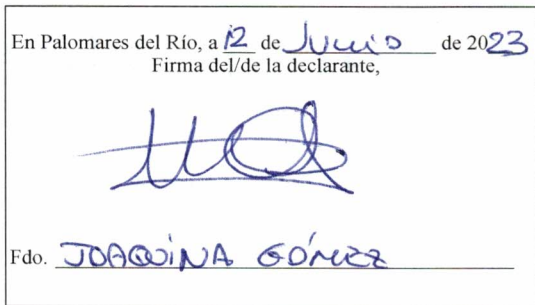 En Palomares del Río, a 12 de Junio de 2023
Firma del/de la declarante,
Fdo. JOAQUINA GÓMEZ